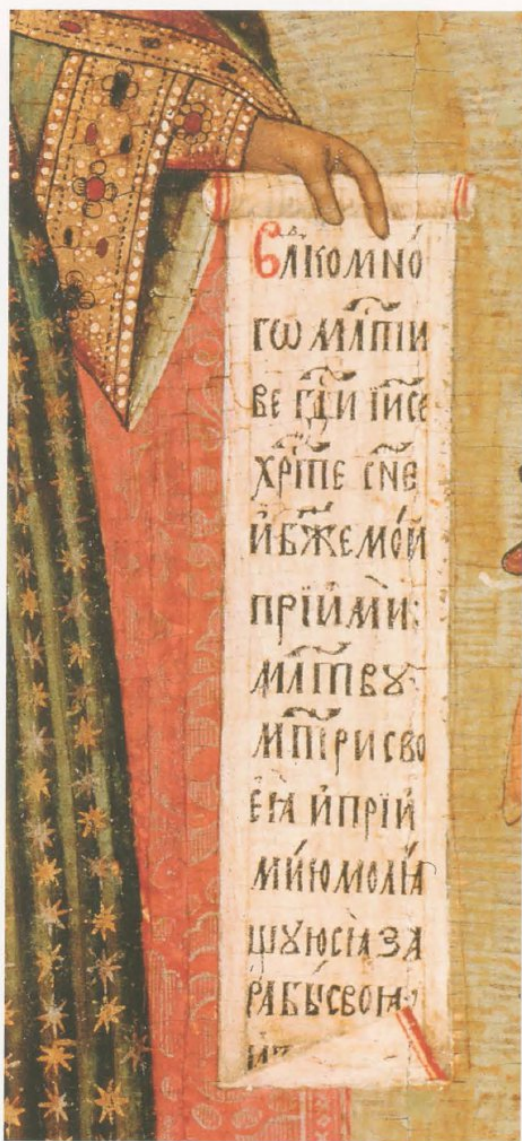 Влⷣкомно́
гѡ мл҃ти
ве гд҃и і҆и҃се
хр҃те сн҃е
и҆ бж҃е мо́й
прїими:
мл҃твꙋ
мт҃ри сво
еꙗ и҆ прїй
ми́ ю молꙗ
шꙋюсꙗ за
рабы́ своꙗ